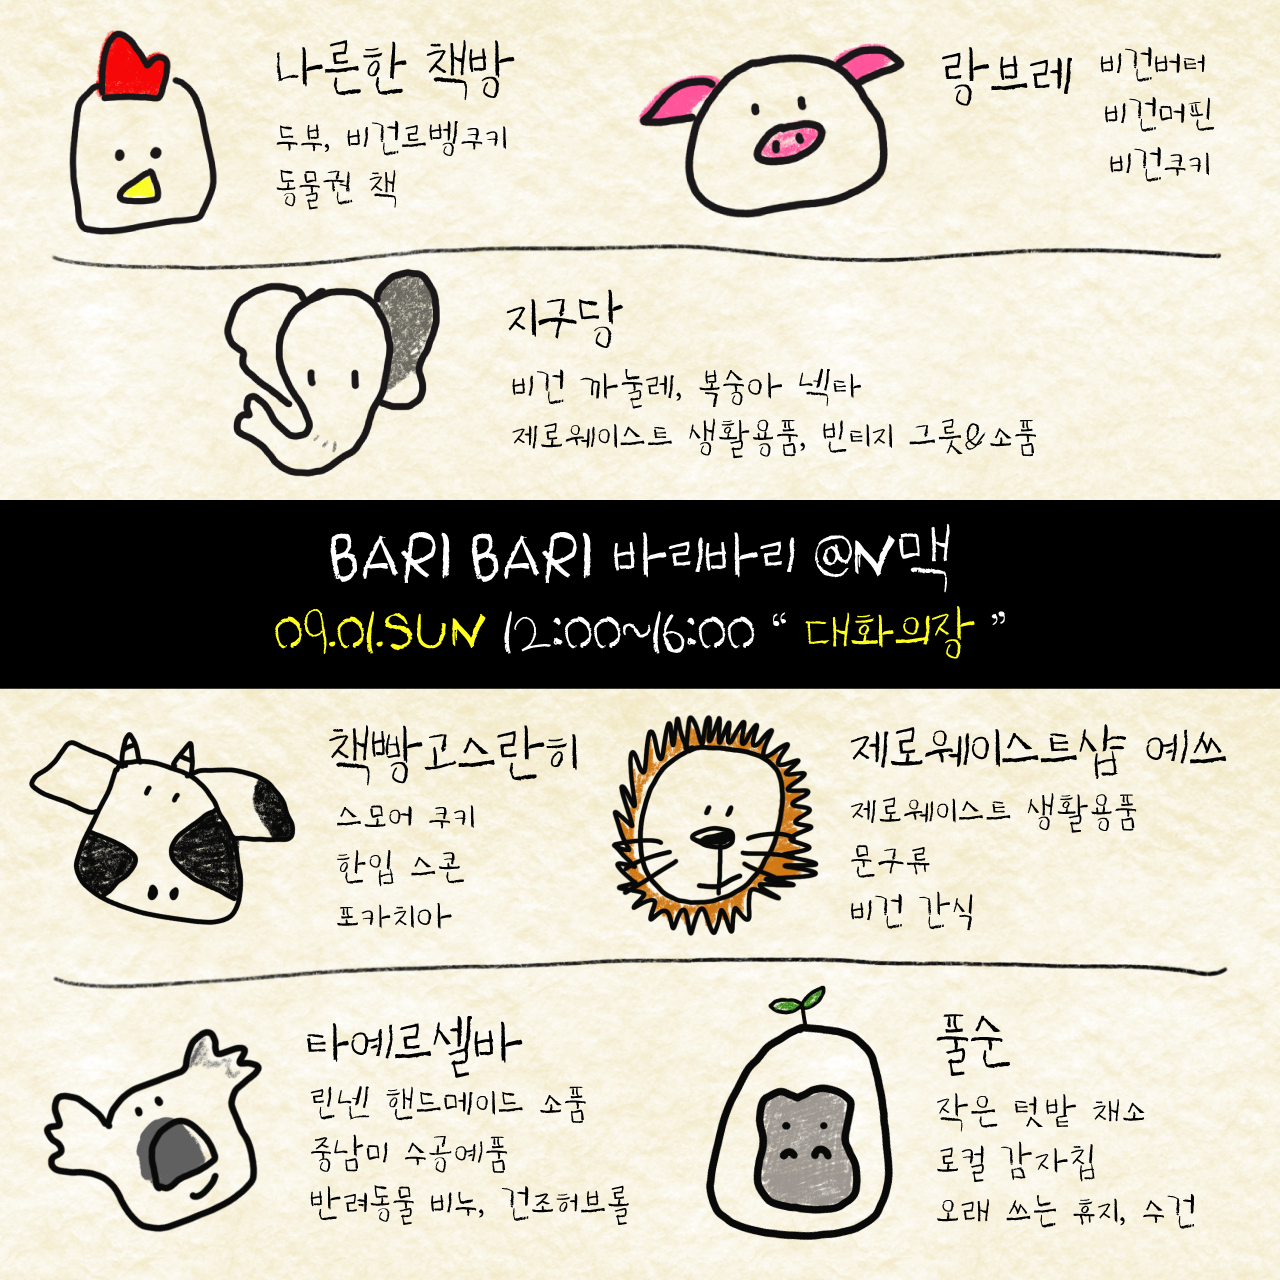 나른한 책방
두부, 비건르벵쿠키
동물권 책
랑브레
비건버터
비건머핀
비건쿠키
지구당
비건 까눌레, 복숭아 넥타
제로웨이스트 생활용품, 빈티지 그릇&소품
BARI BARI 바리바리 @N맥
09.01.SUN 12:00~16:00 “ 대화의장 ”
책빵고스란히
스모어 쿠키
한입 스콘
포카치아
제로웨이스트샵 예쓰
제로웨이스트 생활용품
문구류
비건 간식
타예르셀바
린넨 핸드메이드 소품
중남미 수공예품
반려동물 비누, 건조허브롤
풀순
작은 텃밭 채소
로컬 감자칩
오래 쓰는 휴지, 수건